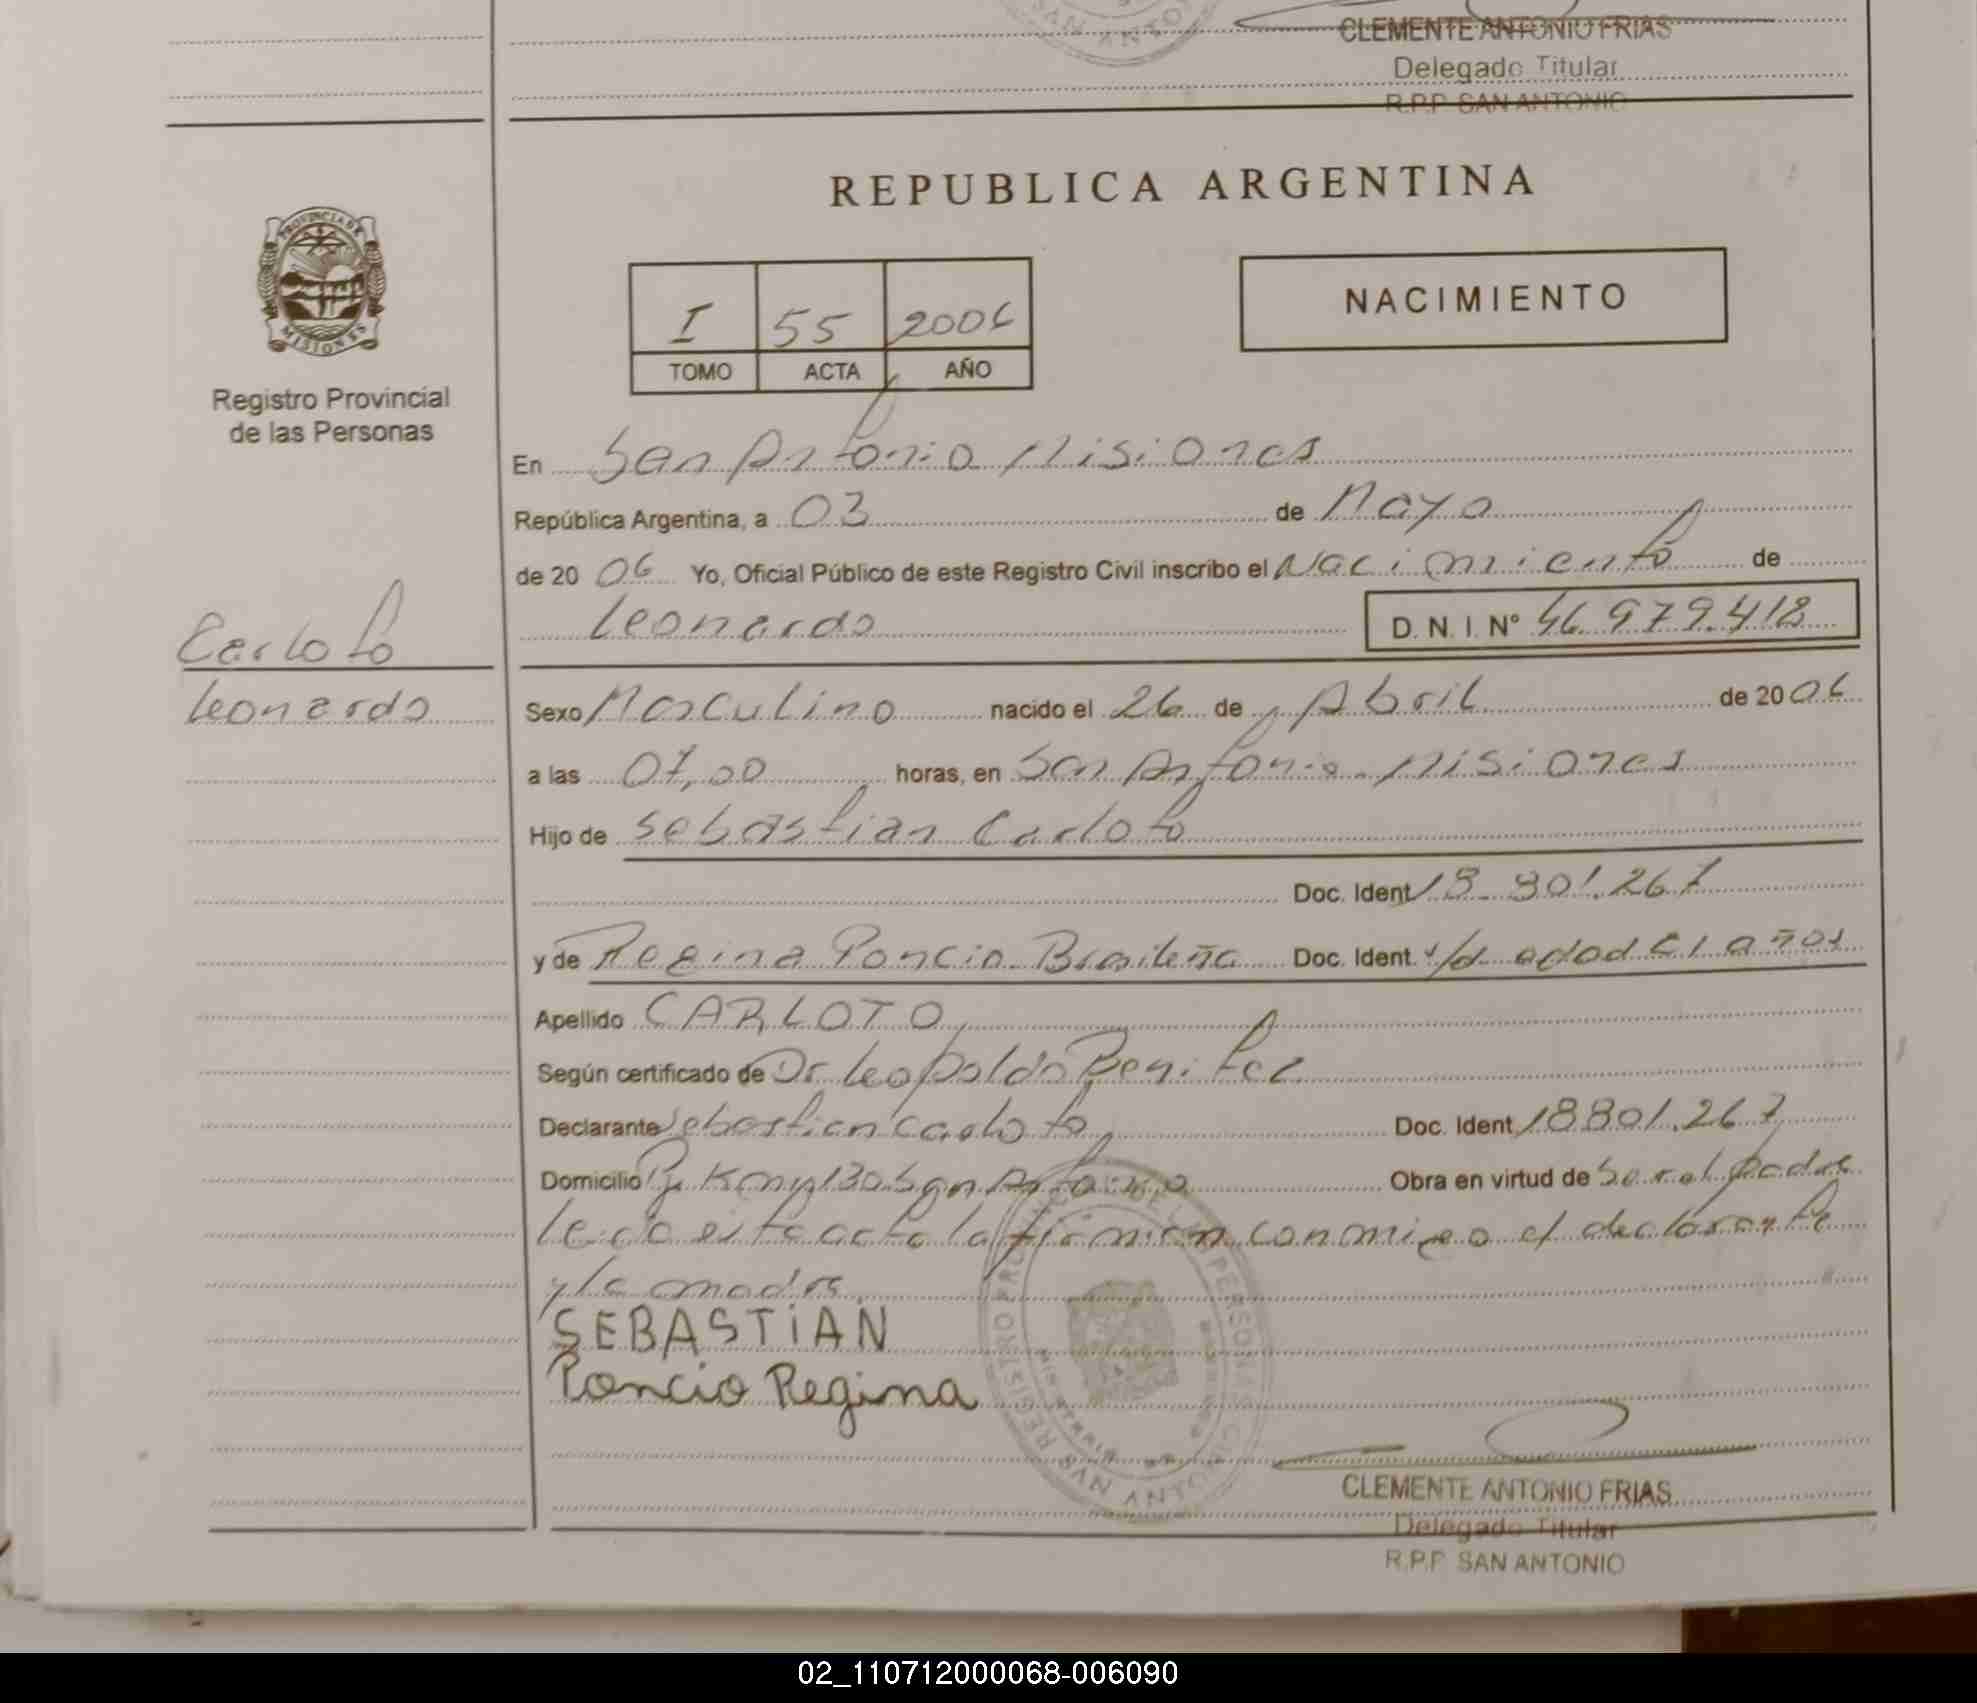 SAN ANTO
CLEMENTE ANTONIO FRIAS
Delegado Titular
R.P.P. SAN ANTONIO
REPUBLICA ARGENTINA
PROVINCIA DE
MISIONES
Registro Provincial
de las Personas
I 55 2006
TOMO ACTA AÑO
NACIMIENTO
En San Antonio Misiones
República Argentina, a 03 de Mayo
de 20 06 Yo, Oficial Público de este Registro Civil inscribo el Nacimiento de
Leonardo D. N. I. N° 46.979.418
Carloto
Leonardo
Sexo Masculino nacido el 26 de Abril de 20 06
a las 07,00 horas, en San Antonio Misiones
Hijo de Sebastian Carloto
Doc. Ident 18.801.267
y de Regina Poncio Brasileña Doc. Ident. s/d edad 41 años
Apellido CARLOTO
Según certificado de Dr. Leopoldo Benitez
Declarante Sebastian Carloto Doc. Ident. 18801.267
Domicilio San Antonio Obra en virtud de ser el padre
leida esta acta la firman conmigo el declarante
y la madre
SEBASTIAN
Poncio Regina
REGISTRO PROVINCIAL DE LAS PERSONAS
SAN ANTONIO
CLEMENTE ANTONIO FRIAS
Delegado Titular
R.P.P. SAN ANTONIO
02_110712000068-006090